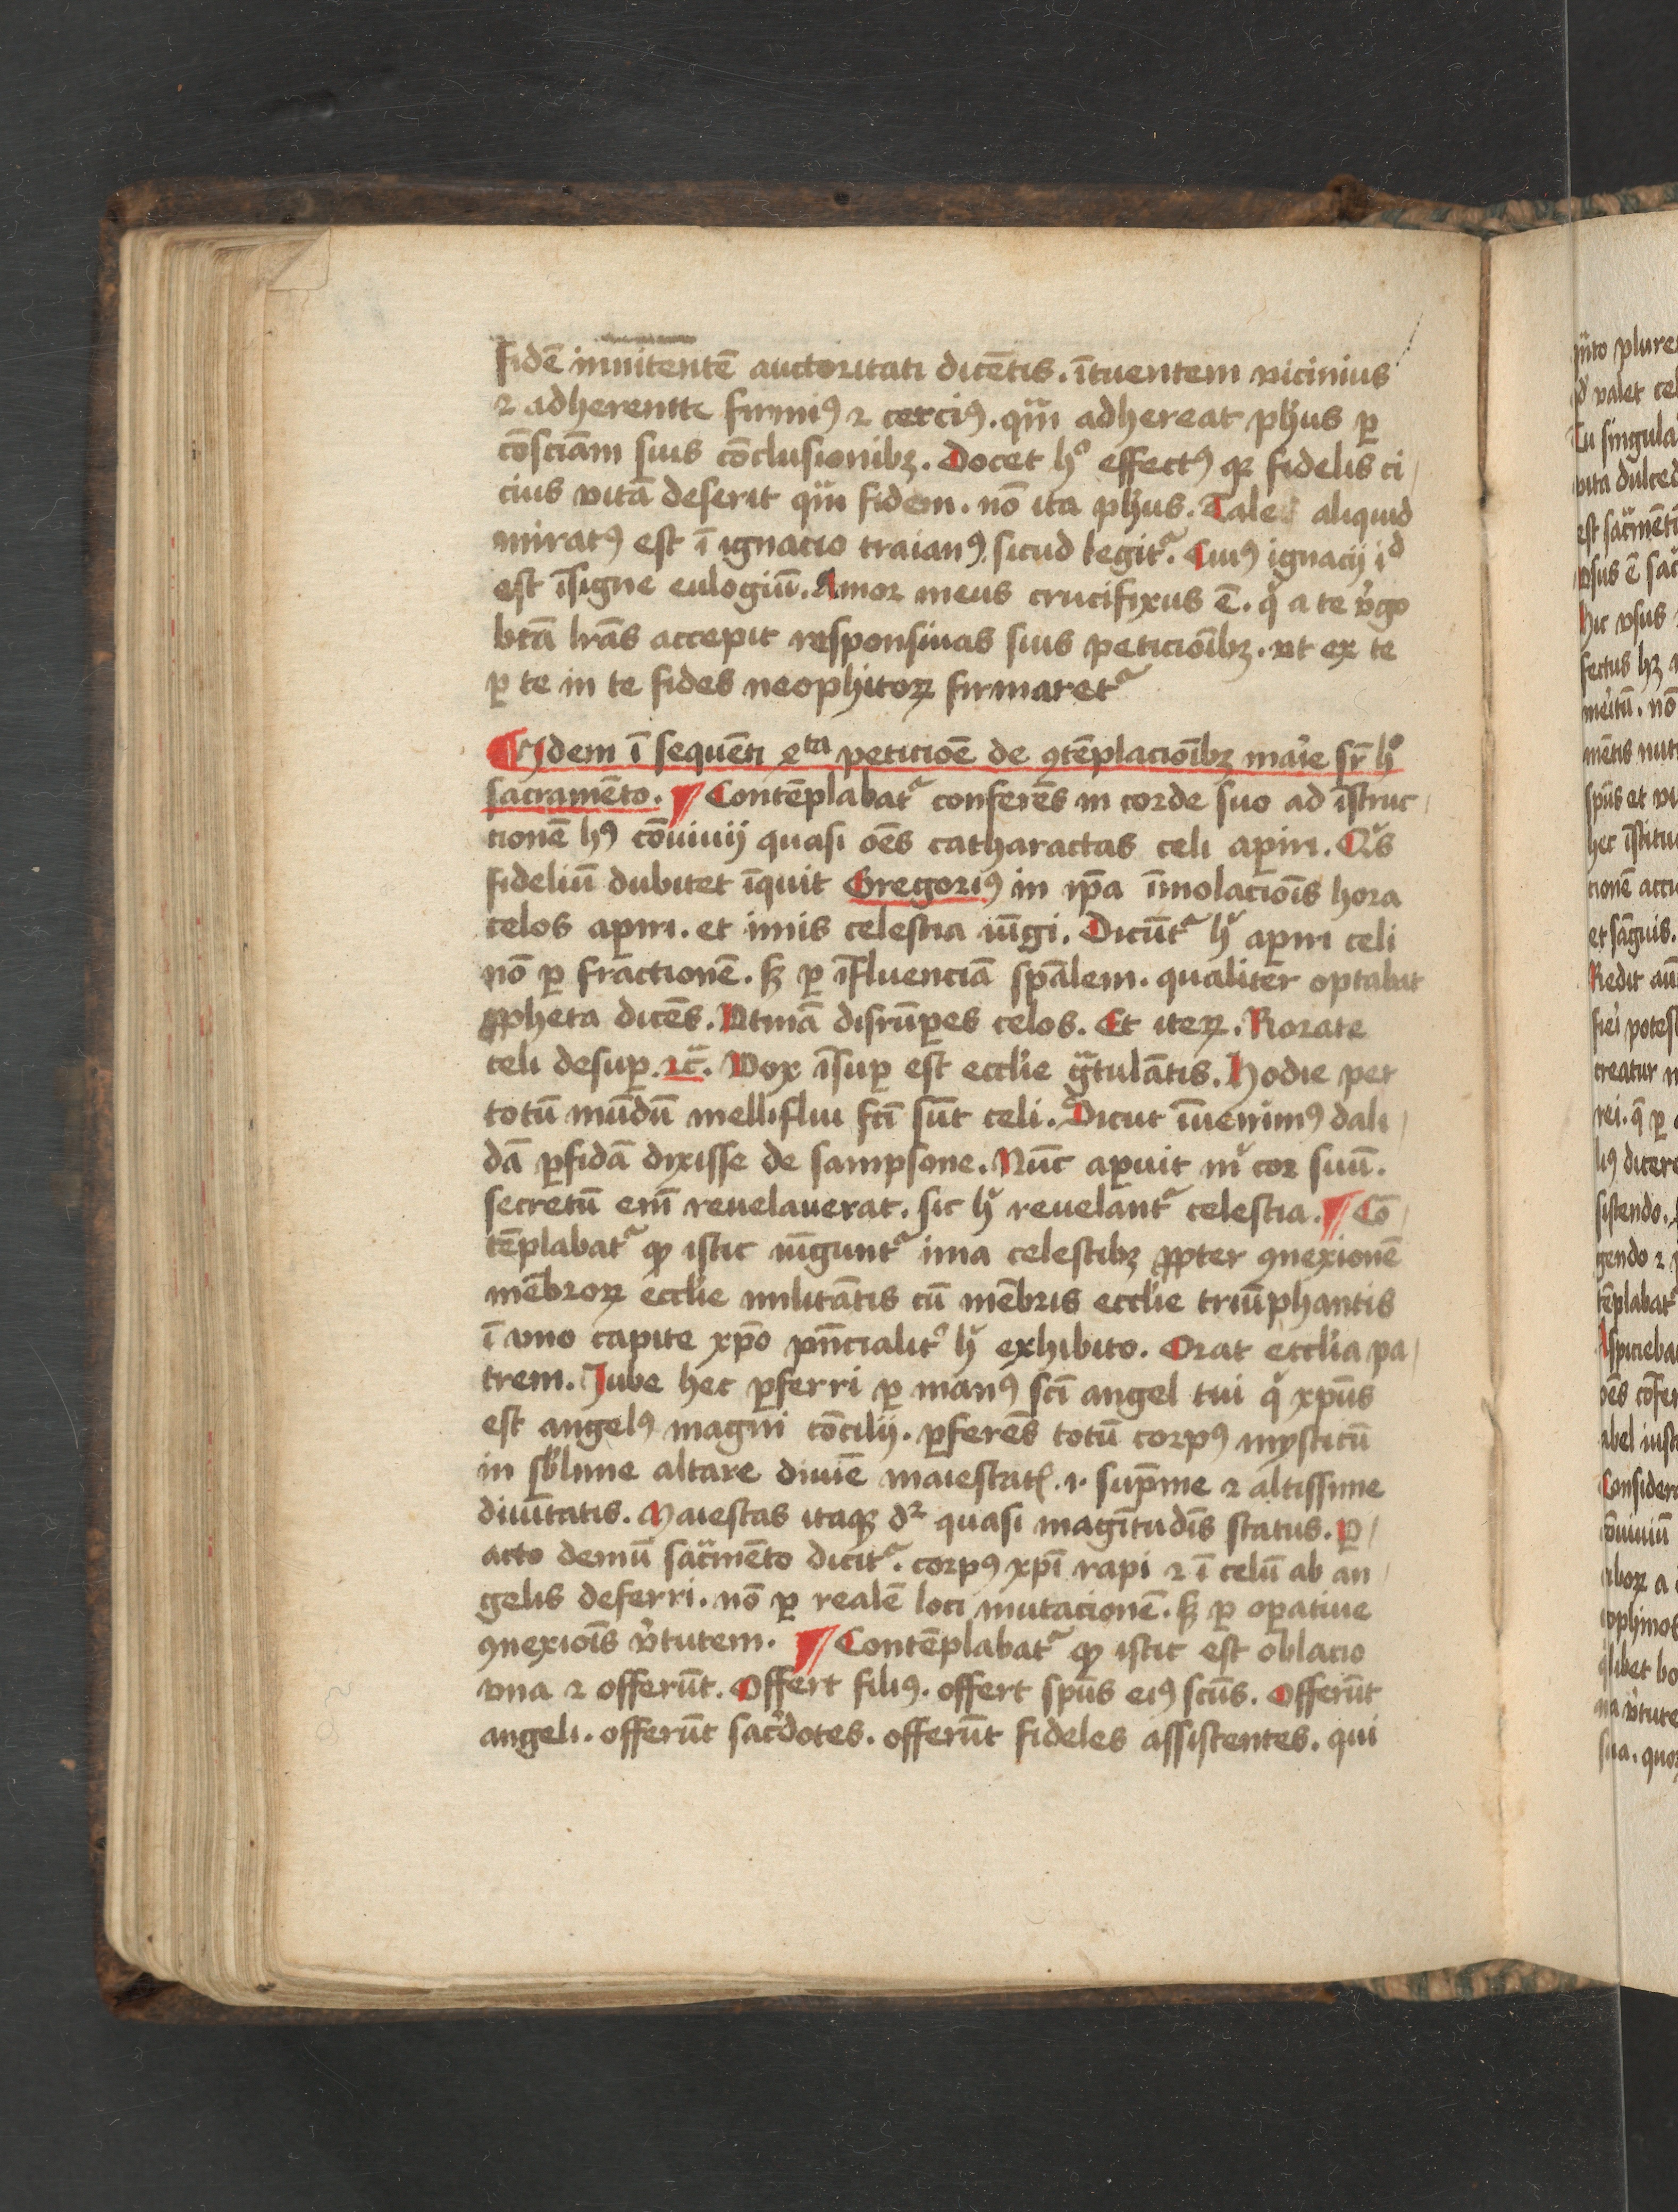 fidē innitentē auctoritati dicētis. ītuentem vicinius
⁊ adherentē firmiꝰ ⁊ cerciꝰ. qͣm adhereat ph̄us ꝑ
cōsciam suis cōclusionibꝫ. Docet hº effectꝰ qꝫ fidelis ci
cius vitā deserit qͣm fidem. nō ita ph̄us. Tale aliquid
miratꝰ est ī ignacio traianꝰ. sicud legitᷓ. Cuiꝰ ignacij iᵈ
est īsigne eulogiū. Amor meus crucifixus ē. qͥ a te vͥgo
btā lr̄as accepit responsiuas suis peticioībꝫ. vt ex te
ꝑ te in te fides neophitoꝝ firmaretᷓ
Idem ī sequēti xᵗᵃ peticiōe de ꝯtēplacioībꝫ marͥe sr̄ hº
sacramēto. ¶ Contēplabatᷓ conferēs in corde suo ad īstruc
tionē hꝰ cōuiuij quasi oēs catharactas celi aꝑiri. Qͥs
fideliū dubitet īquit Gregoriꝰ in ip̄a īmolaciōis hora
celos aꝑiri. et imis celestia iūgi. Dicūtᷓ hͥ aꝑiri celi
nō ꝑ fractionē. sꝫ ꝑ īfluenciā sp̄alem. qualiter optabat
ꝓpheta dicēs. Vtinā disrūpes celos. Et iteꝝ. Rorate
celi desuꝑ. ⁊c̄. Vox īsuꝑ est ecclͥie gͣtulātis. Hodie per
totū mūdū melliflui fcī sūt celi. Sicut īuenimꝰ dali
dā ꝑfidā dixisse de sampsone. Nūc aꝑuit mͥ cor suū.
secretū em̄ reuelauerat. sic hͥ reuelantᷓ celestia. ¶ Cō
tēplabatᷓ qꝫ istic iūguntᷓ ima celestibꝫ ꝓpter ꝯnexionē
mēbroꝝ ecclͥie militātis cū mēbris ecclͥie triūphantis
ī vno capite xp̄o pn̄cialitᷣ hͥ exhibito. Orat ecclͥia pa
trem. Jube hec ꝑferri ꝑ manꝰ scī angel tui qͥ xp̄us
est angelꝰ magni cōcilij. ꝑferēs totū corpꝰ mysticū
in sb̄lime altare diuīe maiestatꝭ .i. sup̄me ⁊ altissime
diuītatis. Maiestas itaqꝫ dᷣ quasi magītudīs status. ꝑ
acto demū sacͣmēto dicitᷓ. corpꝰ xp̄i rapi ⁊ ī celū ab an
gelis deferri. nō ꝑ realē loci mutacionē. sꝫ ꝑ oꝑatiue
ꝯnexiōis vͥtutem. ¶ Contēplabatᷓ qꝫ istic est oblacio
vna ⁊ offerūt. Offert filiꝰ. offert sp̄us eiꝰ scūs. Offerūt
angeli. offerūt sacͥdotes. offerūt fideles assistentes. qui